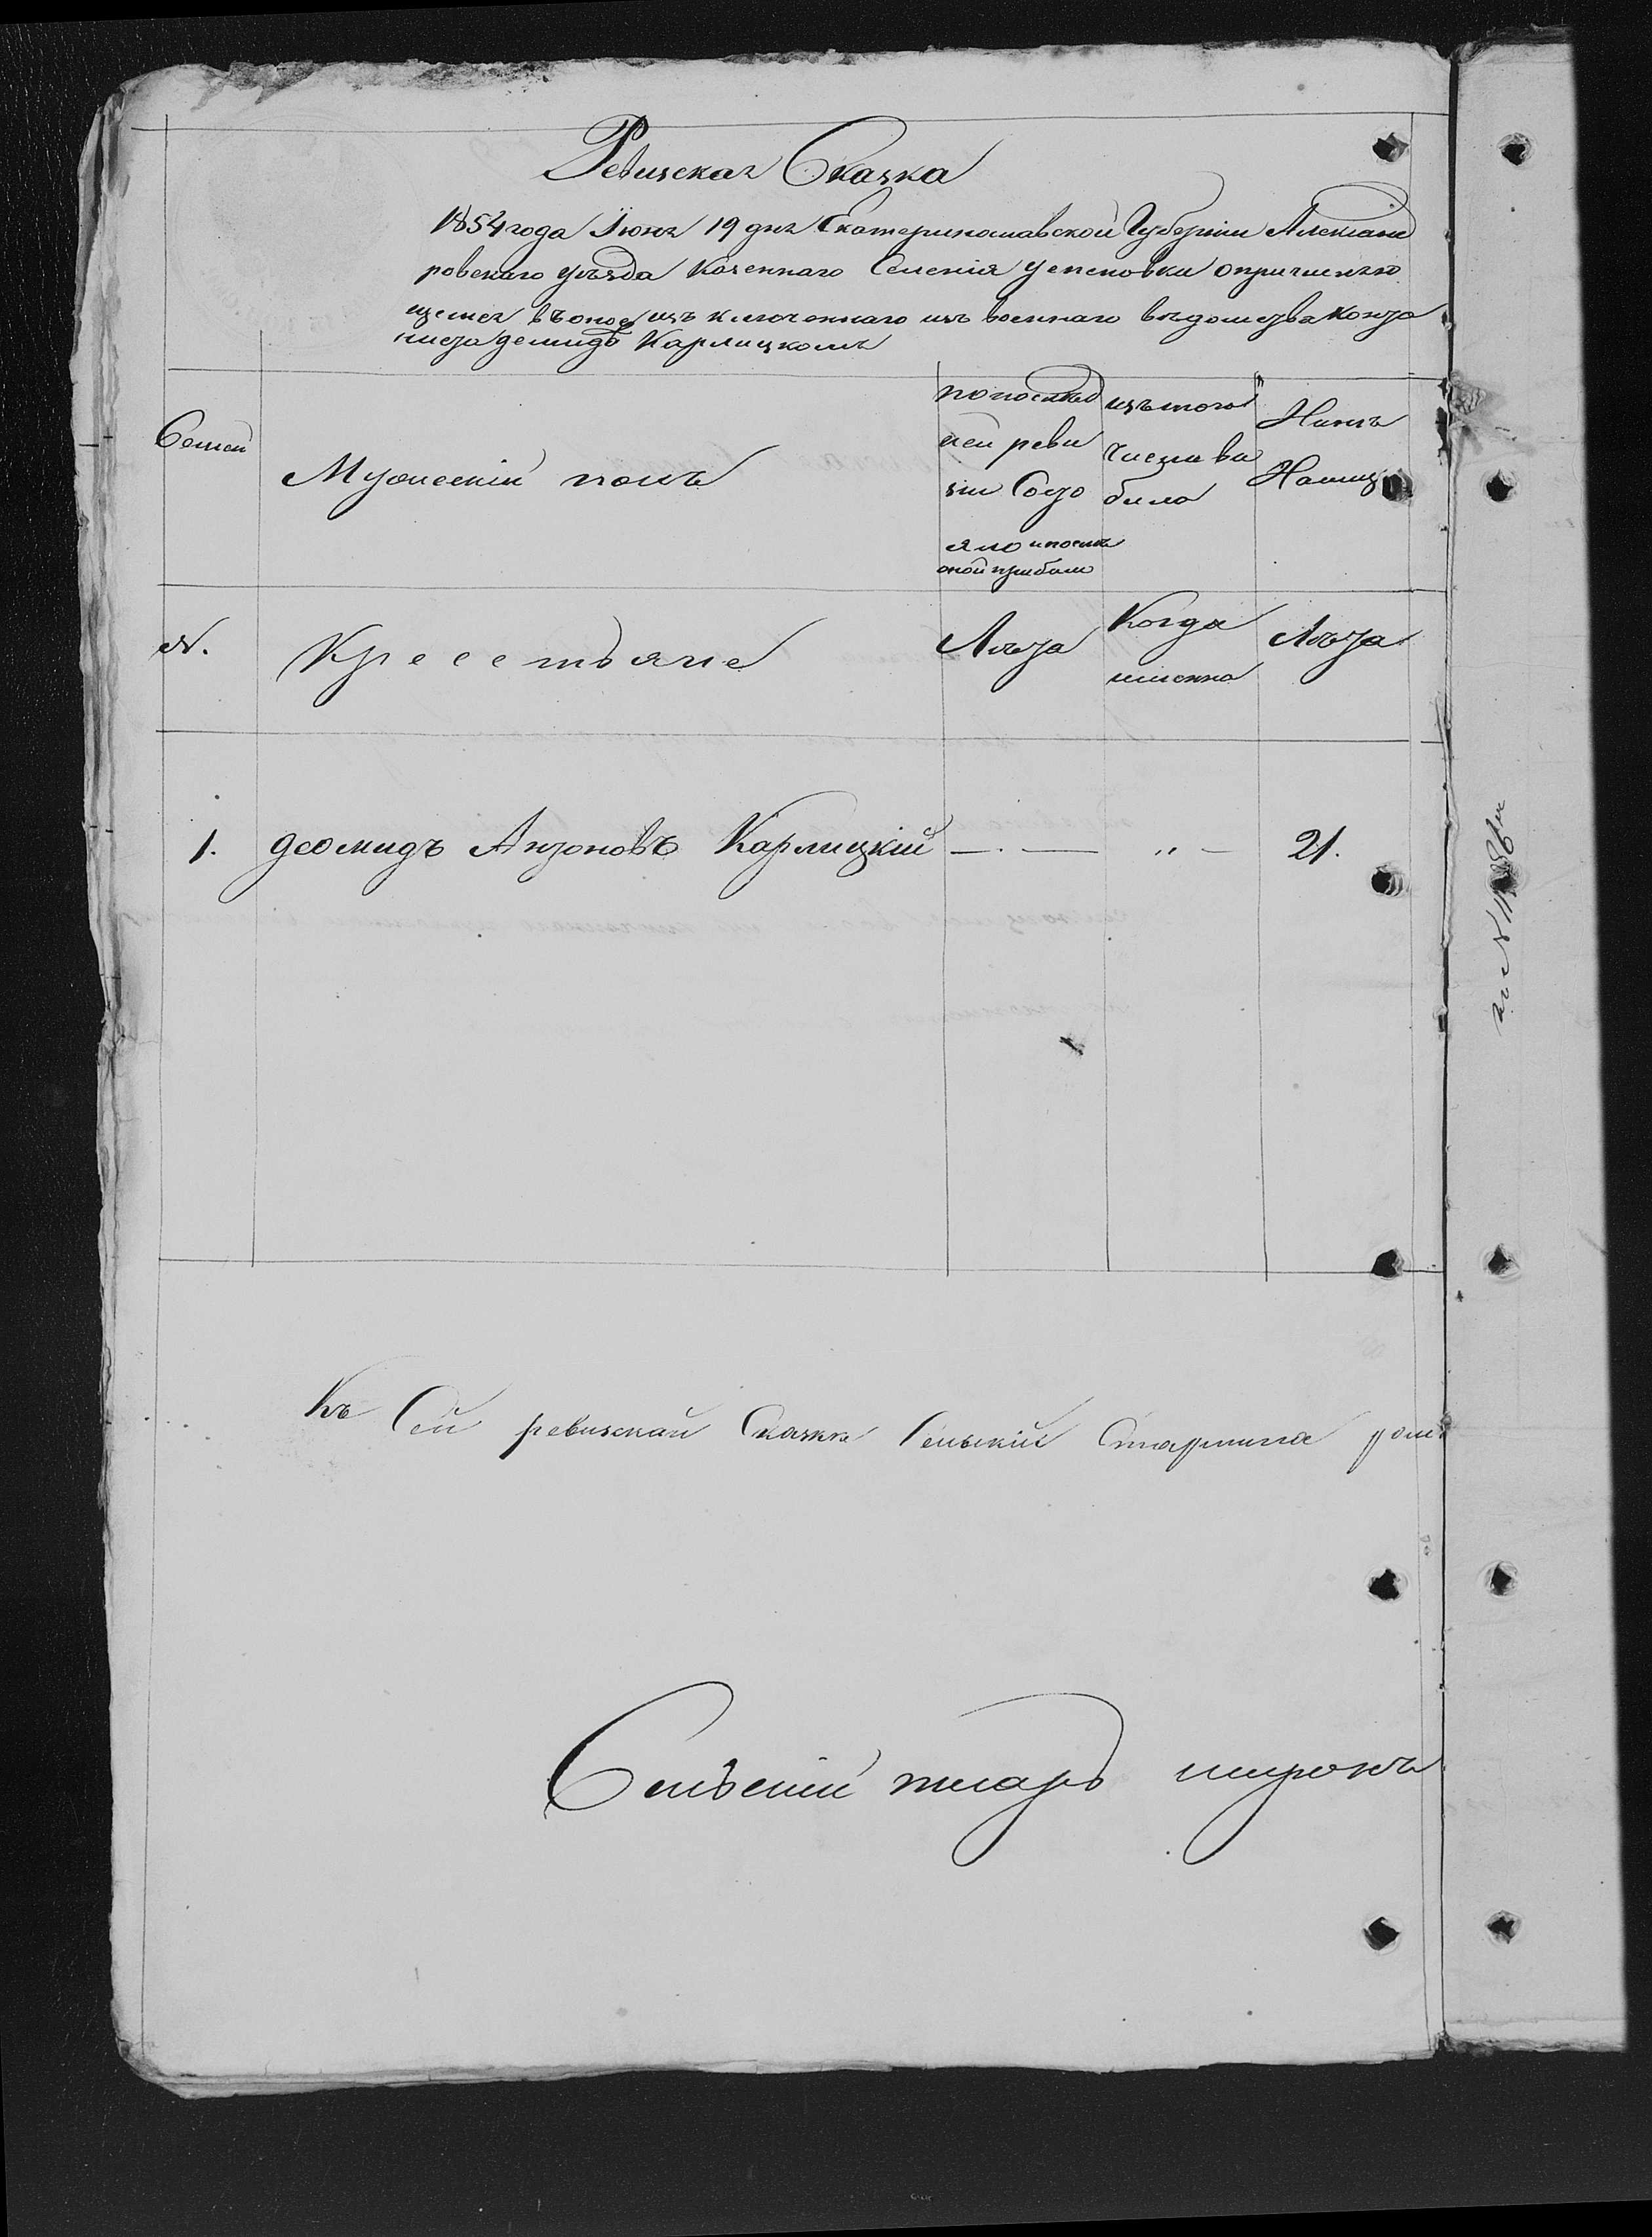 Ревизская Сказка
1854 года Июня 19 дня Екатеринославской Губерніи Александ
ровскаго уѣзда Казеннаго Селенія успеновки опричисляю
щемся въ оное изъ ключеннаго изъ военнаго вѣдомстваКанто
ниста демидѣ Карлицкомъ
Семьи
Мужескій полъ
по послѣд
ней реви
зіи Состо
яло и послѣ
оной прибыло
изъ того
числа вы
было
Нынѣ
На лицо
N.
Крестьяне
Лѣта
Когда
именно
Лѣта
1. деомидъ Антоновъ Карлицкій — . — „ — 21.
Къ Сей ревизской Сказкѣ Сельскій Старшина
Сельскій писарь